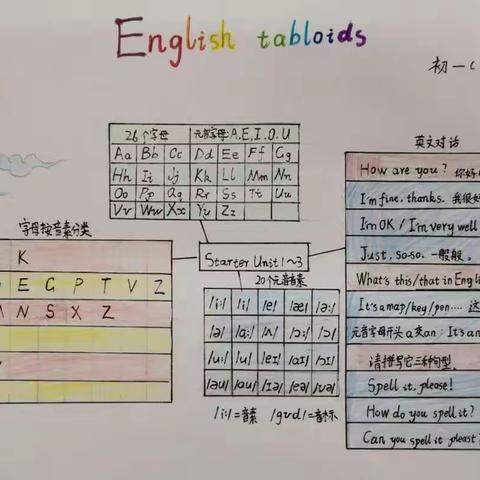 English tabloids
初一(
26个字母 元音字母:A,E,I,O,U
Aa Bb Cc Dd Ee Ff Gg
Hh Ii Jj Kk Ll Mm Nn
Oo Pp Qq Rr Ss Tt Uu
Vv Ww Xx Yy Zz
字母按音素分类
K
E G P T V Z
N S X Z
Starter Unit 1~3
20个元音音素
/i:/ /i/ /e/ /æ/ /ə:/
/ə/ /a:/ /ʌ/ /ɔ:/ /ɔ/
/u:/ /u/ /eɪ/ /aɪ/ /ɔɪ/
/əu/ /au/ /ɪə/ /eə/ /uə/
/i:/=音素 /gud/=音标
英文对话
How are you? 你好
I'm fine, thanks. 我很好
I'm OK / I'm very well
Just so-so. 一般般。
What's this/that in Engl
It's a map/key/pen.... 这
元音字母开头a变an: It's an
请拼写它三种句型
Spell it, please!
How do you spell it?
Can you spell it please?